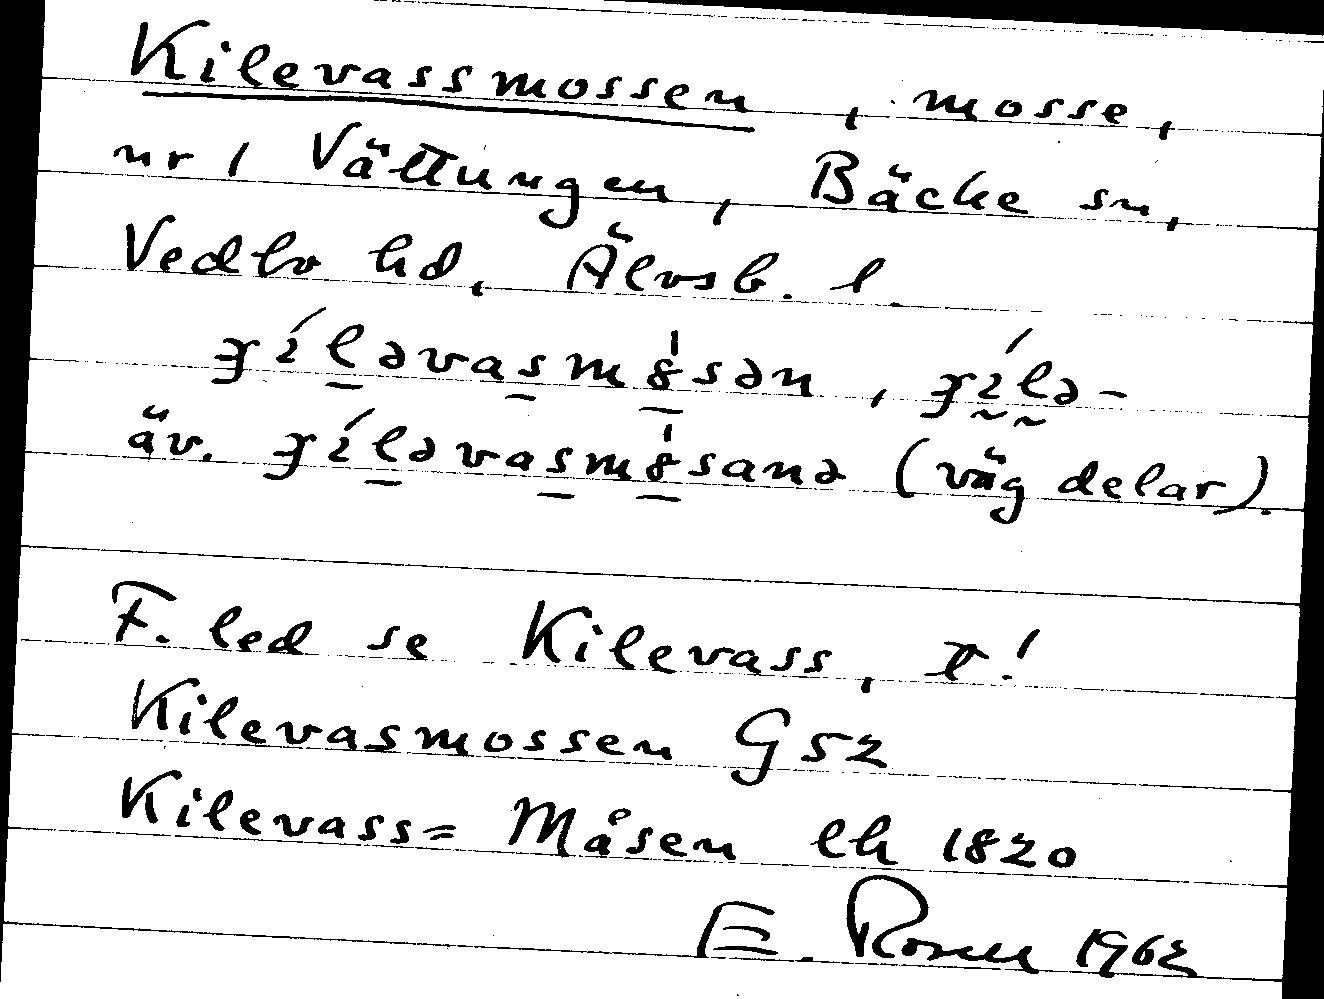 Kilevassmossen, mosse,
nr 1 Vättungen, Bäcke sn,
Vedbo hd, Älvsb. l.
ʒíləvasmȣ̍sən, ʒílə-
äv. ʒíləvasmȣ̍sanə (väg delar).
F. led se Kilevass, t.!
Kilevasmossen G 52
Kilevass= Måsen lh 1820
E. Rosell 1962